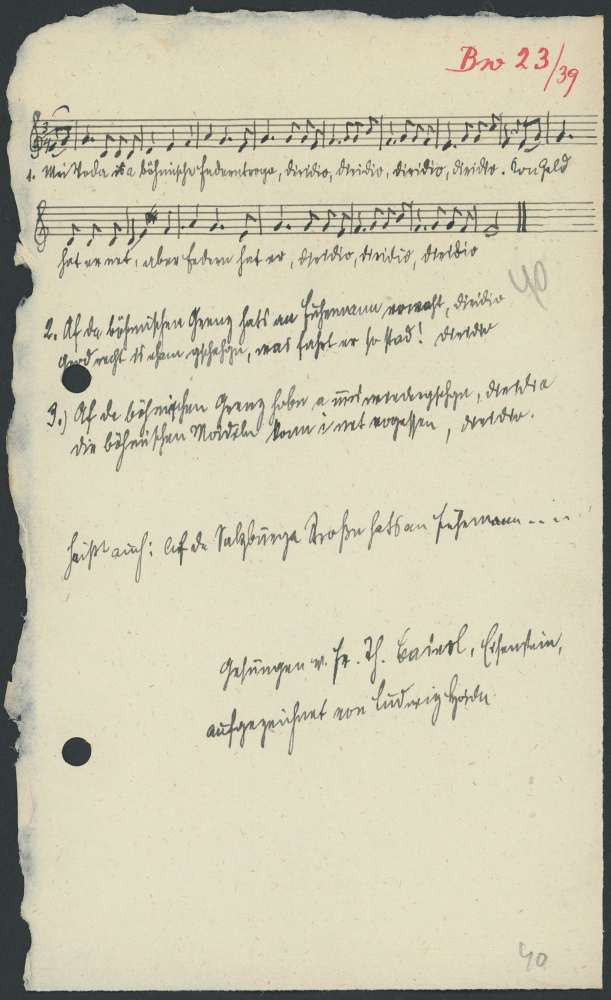 Bw 23/39
1. Mei Voda is a böhmischa Federntroga, diridio, diridio, diridio, diridio. Kon Geld
hat er net, aber Federn hat er, diridio, diridio, diridio
40
2. Af da böhmischen Grenz hats an Fuhrmann vowaht, diridio
Grod recht is eham gschehgn, was fahrt er so stad! diridio
3.) Af da böhmischen Grenz hobn a wiedergsehgn, diridio
die böhmischen Moideln konn i net vogessen, diridio.
Heißt auch: Af da Salzburga Stroßn hats an Fuhrmann .. ..
Gesungen v. Fr. Th. Bairol, Eisenstein,
aufgezeichnet von Ludwig Hoidn
40